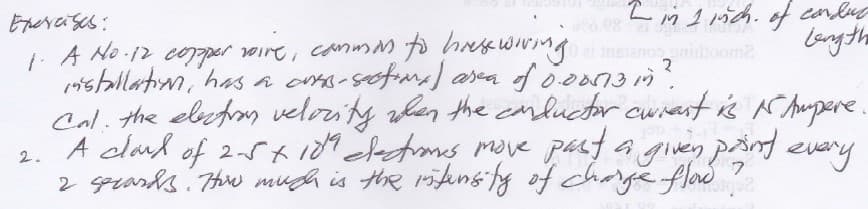 Exercises:
in 1 inch. of conduc
length
1. A No.12 copper wire, common to house wiring
installation, has a cross-sectional area of 0.00513 in².
Cal. the electron velocity when the conductor current is 15 Ampere.
2. A cloud of 2.5 x 10¹⁹ electrons move past a given point every
2 seconds. How much is the intensity of charge flow?